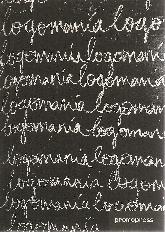 logomanía logo
logomanía logoman
logomanía logoman
logomanía logoman
logomanía logoman
logomanía logoman
logomanía logom
logomanía logoman
promopress